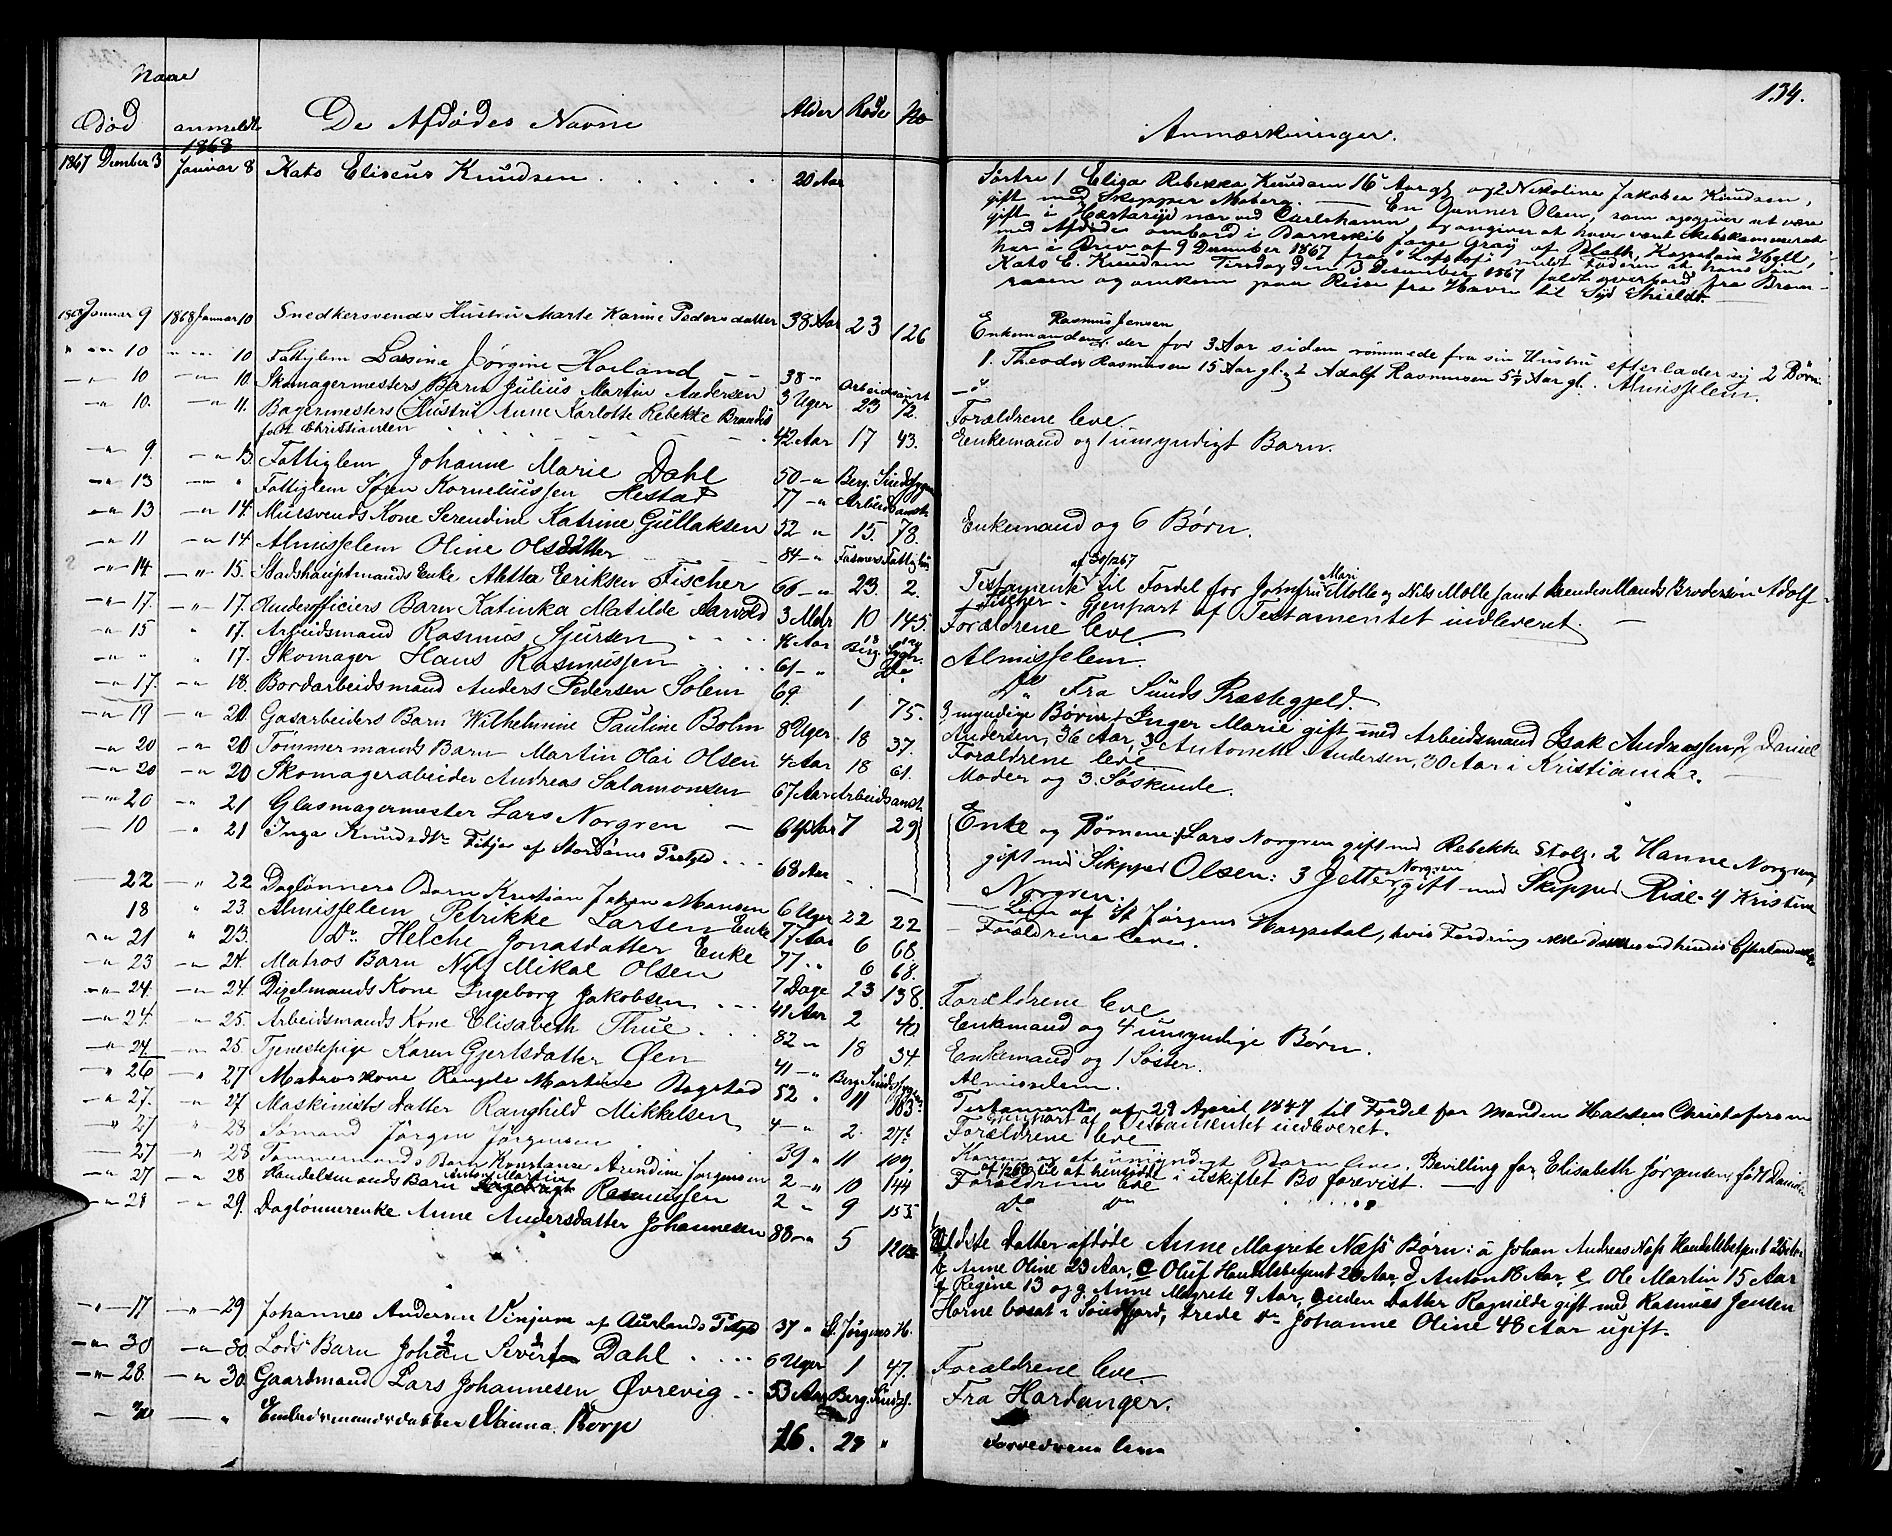 134.
Naar
Død anmeldt De Afdødes Navne Alder Rode No Anmærkninger.
1868
1867 Dember 3 Januar 8 Kato Eliseus Knudsen 20 Aar
Søstre 1 Elisa Rebekka Knudsen 16 Aar gl og 2 Nikoline Jakobea Knudsen,
gift med Skipper Moberg. — En Gunner Olsen, som opgiver at være
gift i nær ved Carlshamn, og angiver at have været Skibskammerat
med Afdøde ombord i Barkskib Jane Gray af Kaptain
har i Brev af 9 December 1867 fra meldt Faderen at hans Søn
Kato E. Knudsen Tirsdag den 3 December 1867 faldt overbord fra Bram-
raaen og omkom paa Reise fra Havre til Syd Shields. —
1868 Januar 9 1868 Januar 10 Snedkersvends Hustru Marte Karine Pedersdatter 38 Aar 23 126
Rasmus Jensen
Enkemanden, der for 3 Aar siden rømmede fra sin Hustru efterlader sig 2 Børn:
1. Theodor Rasmussen 15 Aar gl. 2 Adolf Rasmussen 5½ Aar gl. Almisselem.
" 10 " 10 Fattiglem Lasine Jørgine Hoiland 38 " Arbeidsanst
" 10 " 10. Skomagermesters Barn Julius Martin Andersen 3 Uger 23 72. Forældrene leve.
" 10. " 11. Bagermesters Hustru Anne Karlotte Rebekke Brandis
født Christiansen 42 Aar 17 43. Enkemand og 1 umyndigt Barn.
" 9. " 13. Fattiglem Johanne Marie Dahl 50 " Berg. Sindssygea
" 13 " " Fattiglem Søren Korneliussen Hestad 77 " Arbeidsanst.
" 13 " 14. Mursvends Kone Serendine Katrine Gullaksen 52 " 15. 78. Enkemand og 6 Børn.
" 11 " 14. Almisselem Oline Olsdatter 84 " Fasmers Fattighus
" 14 " 15. Stadshauptmands Enke Aletta Eriksen Fischer 66 " 23. 2.
Testament af til Fordel for Jomfru Mari Molle og Nils Molle samt hendes Mands Brodersøn Adolf
Fischer - Gjenpart af Testamentet indleveret. —
" 17. " 17. Underofficiers Barn Katinka Matilde Aarvold 3 Mdr 10 145. Forældrene leve.
" 15 " 17. Arbeidsmand Rasmus Sjursen Aar Berg. Sygh. Almisselem.
" " " 17. Skomager Hans Rasmussen 61 " Do Do Fra Sunds Præstegjeld.
" 17. " 18. Bordarbeidsmand Anders Pedersen Solem 69. 1 75.
3 myndige Børn: 1 Inger Marie gift med Arbeidsmand Isak Andreassen, 2 Daniel
Andersen, 36 Aar, 3 Antonette Andersen, 30 Aar i Kristiania.
" 19 " 20. Gasarbeiders Barn Wilhelmine Pauline Bolm 8 Uger 18 37. Forældrene leve
" 20 " 20. Tømmermands Barn Martin Olai Olsen 4 Aar 18 61. Moder og 3. Søskende.
" 20 " 20 Skomagerarbeider Andreas Salamonsen 67 Aar Arbeidsanst.
" 20 " 21 Glasmagermester Lars Norgren — 64 Aar 7 29
Enke og Børnene: 1 Lars Norgren gift med Rebekke Stolz. 2 Hanne Norgren
gift med Skipper Olsen: 3 Jette Norgren gift med Skipper Rise. 4 Kristine
Norgren.
— 10 " 21 Inga Knudsdtr Fitje af Stordøens Prstgjed 68 Aar
— Lem af St. Jørgens Hospital, hvis Fordring ikke
— 22 " 22 Dagløнners Barn Kristian Johan Monsen 6 Uger 22 22 — Forældrene leve.
18 " 23. Almisselem Petrikke Larsen Enke 77 Aar 6 68.
" 21 " 23. Do Helche Jonasdatter Enke 77 " 6 68.
" 23 " 24. Matros Barn Nils Mikal Olsen 7 Dage 23 138. Forældrene leve
" 24. " 24. Digelmands Kone Ingeborg Jakobsen 41 Aar 2 40 Enkemand og 4 umyndige Børn.
" 24. " 25. Arbeidsmands Kone Elisabeth Thue 82 " 18 34. Enkemand og 1 Søster.
" 24 " 25. Tjenestepige Karen Gjertsdatter Øen 41 " Berg. Sindssyge Almisselem.
" 26 " 27 Matroskone Martine Bogstad 52 " 11 103.
Testamente af 29 April 1847 til Fordel for Manden Halsten Christofersen
Gjenpart af Testamentet indleveret.
" 27. " 27. Maskinists Datter Ranghild Mikkelsen 4 " 2. 276 Forældrene leve
" 27 " 28 Sømand Jørgen Jørgensen 39 " 11 109.
Konen og et umyndigt Barn leve. Bevilling for Elisabeth Jørgensen, født
til at hensidde i uskiftet Bo forevist.
— 27 " 28 Tømmermands Barn Konstanse Arindine Jørgensen 2 " 10 144 Forældrene leve
" 27 " 28 Handelsmands Barn Martin Rasmussen 2 " 9 155. Do Do
" 28 " 29. Dagløнnerenke Anne Andersdatter Johannesen 88 " 5 120
Ældste Datter afdøde Anne Magrete Næss Børn: a Johan Andreas Næss Handelsbetjent 25 Aar
b Anne Oline 23 Aar, c Oluf Handelsbetjent 20 Aar, d. Anton 18 Aar, e. Ole Martin 15 Aar
f Regine 13 og g. Anne Magrete 9 Aar, anden Datter Ragnilde gift med Rasmus Jensen
Horne bosat i Søndfjord, tredie Dr Johanne Oline 48 Aar ugift.
" 17 " 29 Johannes Andersen Vinjum af Aurlands Prstgjd 37 " St. Jørgens H.
" 30 " 30. Lods Barn Johan Severin Dahl 6 Uger 1 47. Forældrene leve.
" 28. " 30. Gaardmand Lars Johannesen Øvrevig 53 Aar Berg. Sindss. Fra Hardanger.
— " Embedsmandsdatter Korp 16. 23 " Forældrene leve